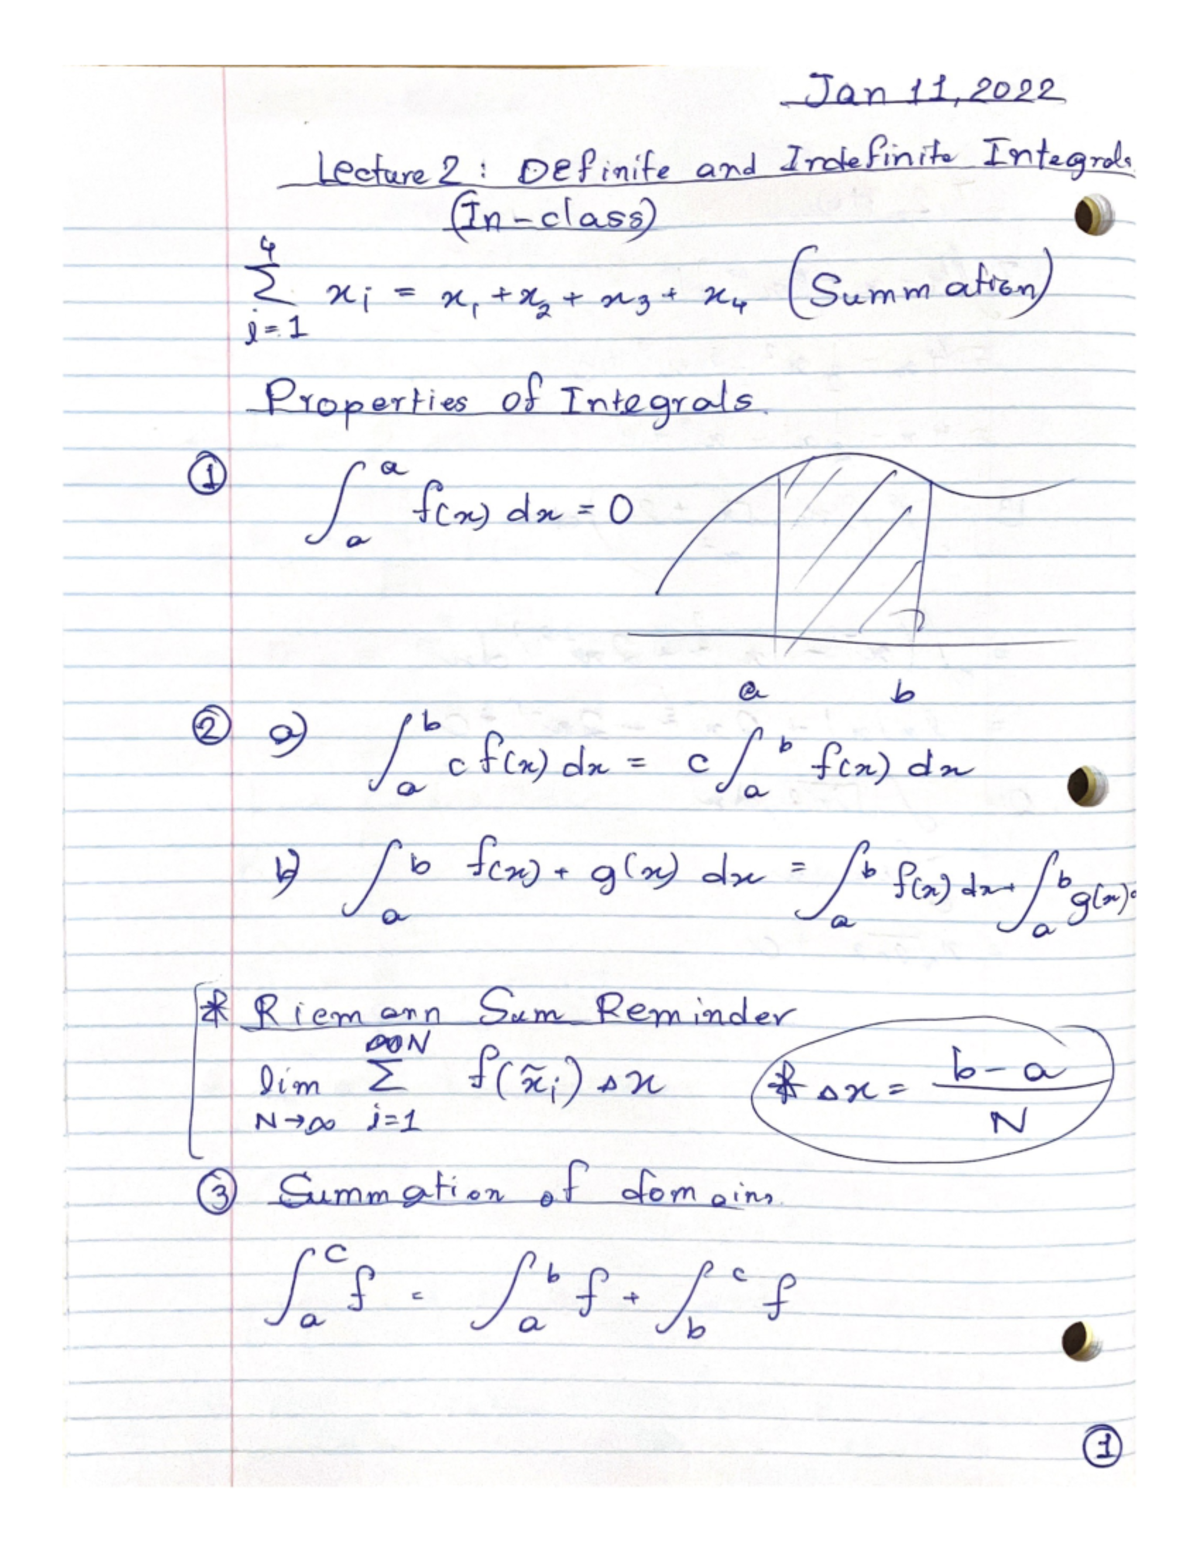 Jan 11, 2022
Lecture 2 : Definite and Indefinite Integrals
(In-class)
4
∑ xᵢ = x₁ + x₂ + x₃ + x₄ (Summation)
i=1
Properties of Integrals.
① ∫ₐᵃ f(x) dx = 0
a b
② a) ∫ₐᵇ c f(x) dx = c ∫ₐᵇ f(x) dx
b) ∫ₐᵇ f(x) + g(x) dx = ∫ₐᵇ f(x) dx + ∫ₐᵇ g(x)
* Riemann Sum Reminder
N
lim ∑ f(x̃ᵢ) Δx * Δx = (b - a)/N
N→∞ i=1
③ Summation of domains.
∫ₐᶜ f = ∫ₐᵇ f + ∫ᵇᶜ f
①